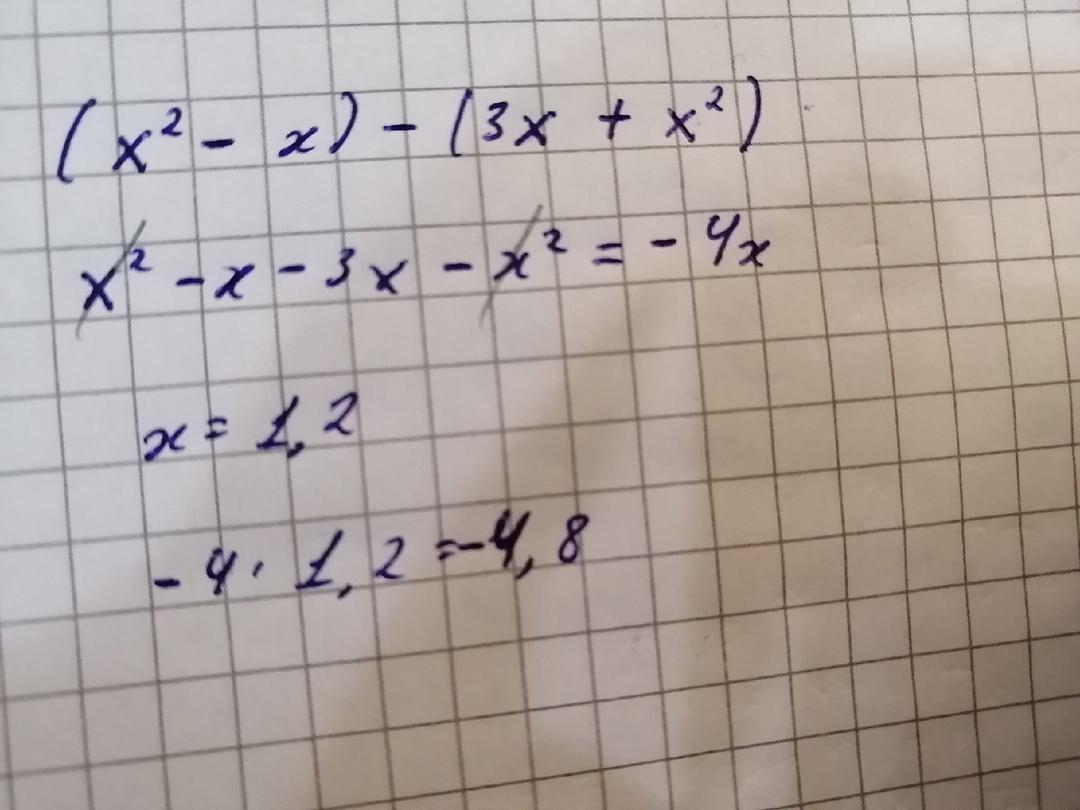 (x² - x) - (3x + x²)
x² - x - 3x - x² = - 4x
x = 1,2
- 4 · 1,2 = -4,8